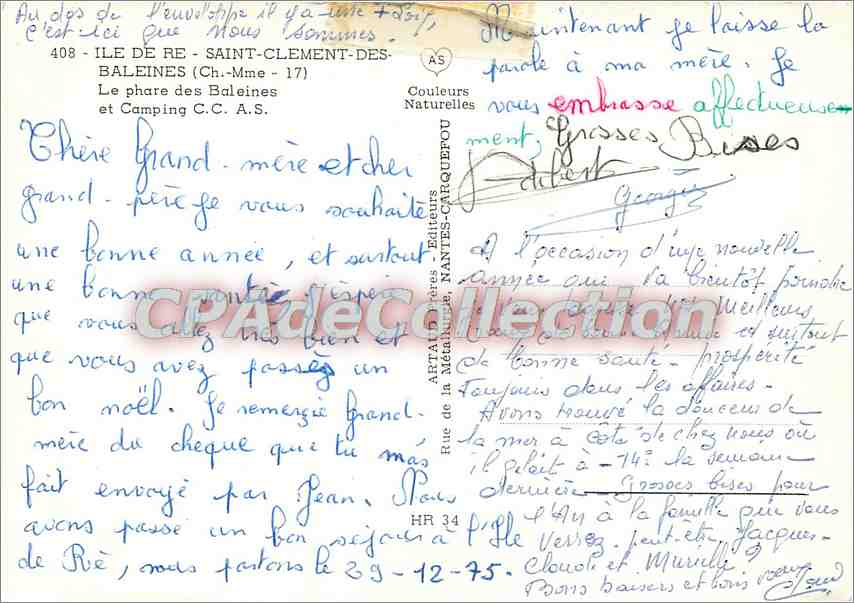 Au dos de l'enveloppe il y a une
c'est ici que nous sommes.
408 - ILE DE RE - SAINT-CLEMENT-DES-
BALEINES (Ch.-Mme - 17)
Le phare des Baleines
et Camping C.C. A.S.
AS
Couleurs
Naturelles
Chère Grand-mère et cher
grand-père Je vous souhaite
une bonne année, et surtout,
une bonne santée j'espère
que vous allez très bien et
que vous avez passés un
bon noël. Je remerçie Grand-
mère du cheque que tu m'as
fait envoyé par Jean. Nous
avons passé un bon séjour à l'Ile
de Ré, nous partons le 29-12-75.
Maintenant je laisse la
parole à ma mère. Je
vous embrasse affectueuse-
ment, Grosses Bises
Georges
A l'occasion d'une nouvelle
année qui va bientôt
meilleurs
et surtout
de bonne santé - prospérité
toujours dans les affaires -
Avons trouvé la douceur de
la mer à côté de chez nous où
il gelait à -14° la semaine
dernière - Grosses bises pour
l'An à la famille que vous
verrez peut-être Jacques-
Claude et Murielle ?
Bons baisers et bons
ARTAUD Frères Editeurs
Rue de la Métallurgie, NANTES-CARQUEFOU
HR 34
CPAdeCollection